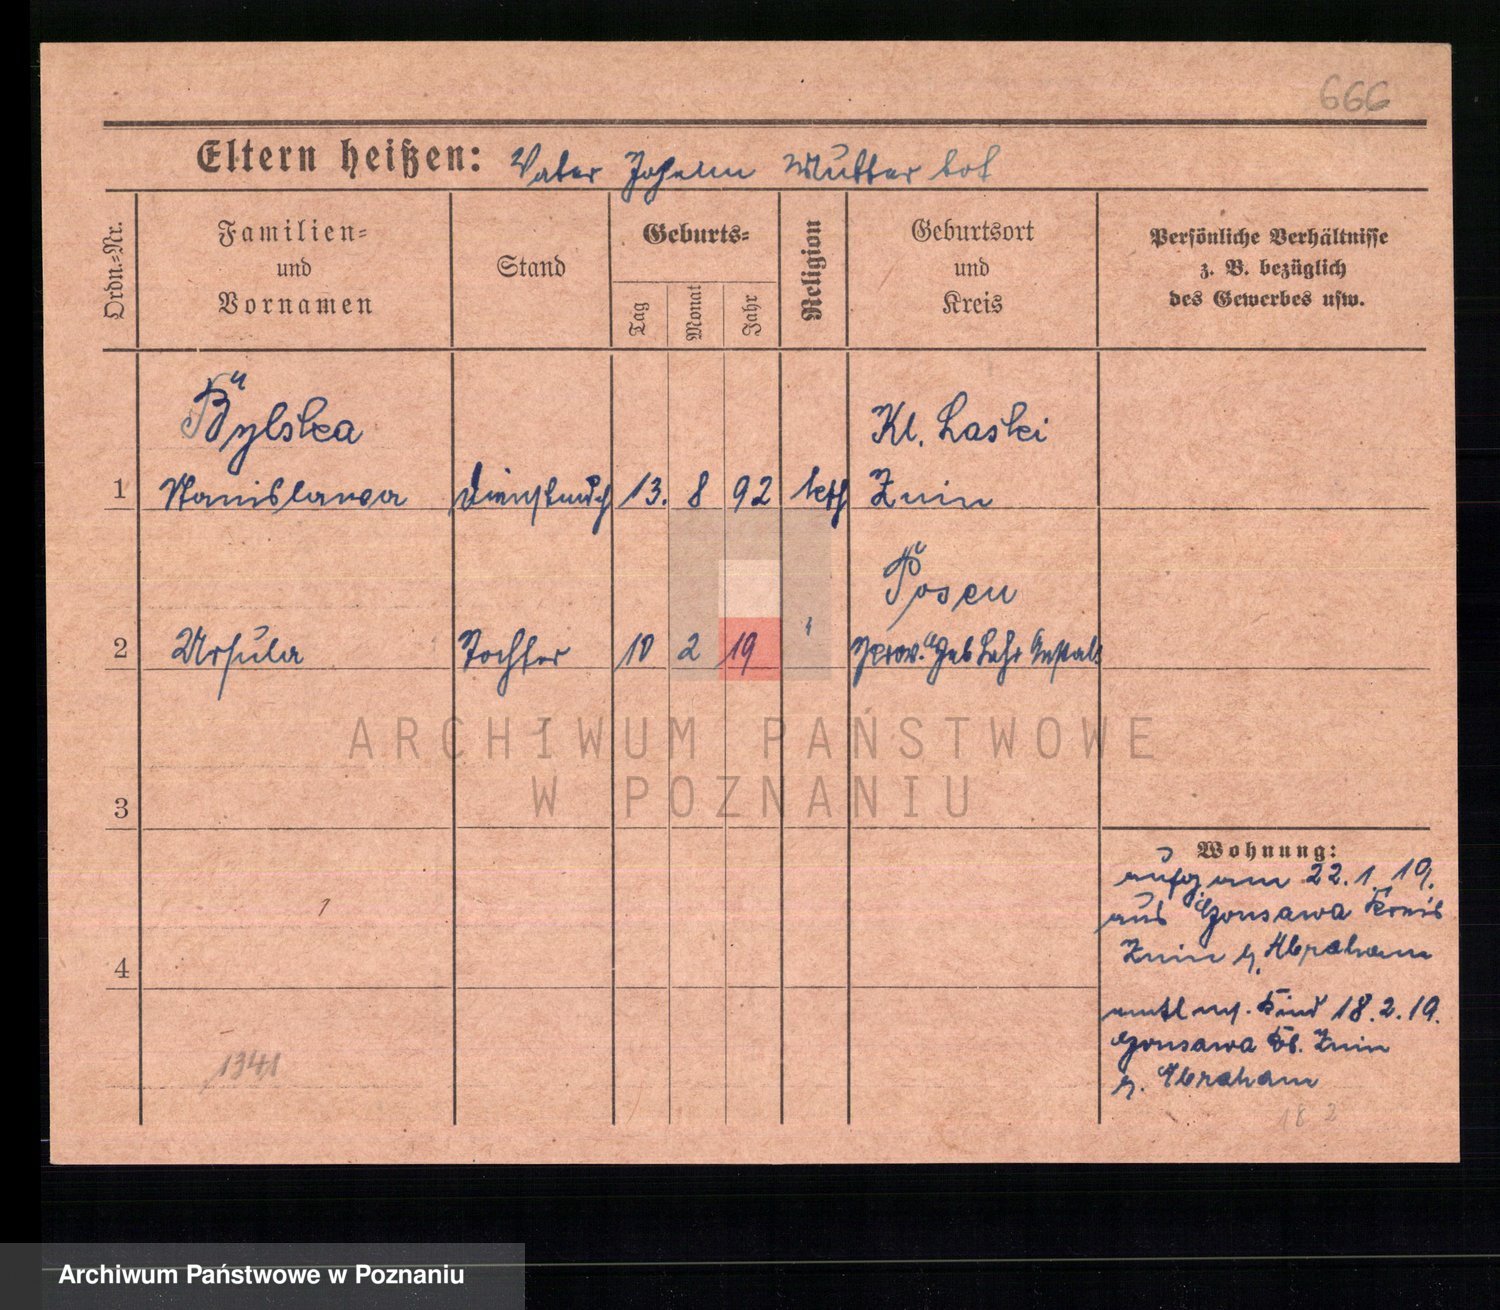 666
Eltern heißen: Vater Johann Mutter tot
Ordn.-Nr.
Familien-
und
Vornamen
Stand
Geburts-
Tag
Monat
Jahr
Religion
Geburtsort
und
Kreis
Persönliche Verhältnisse
z. B. bezüglich
des Gewerbes usw.
Bylska
Kl. Laski
1 Stanislawa Dienstmdch 13. 8 92 kath Znin
Posen
2 Ursula Tochter 10 2 19 Prov. Heb Lehr Anstalt
ARCHIWUM PAŃSTWOWE
W POZNANIU
3
Wohnung:
aufg am 22.1.19.
aus Gonsawa Kreis
Znin b. Abraham
4
entl m. Kind 18.2.19.
Gonsawa Kr. Znin
b. Abraham
1341
18 2
Archiwum Państwowe w Poznaniu